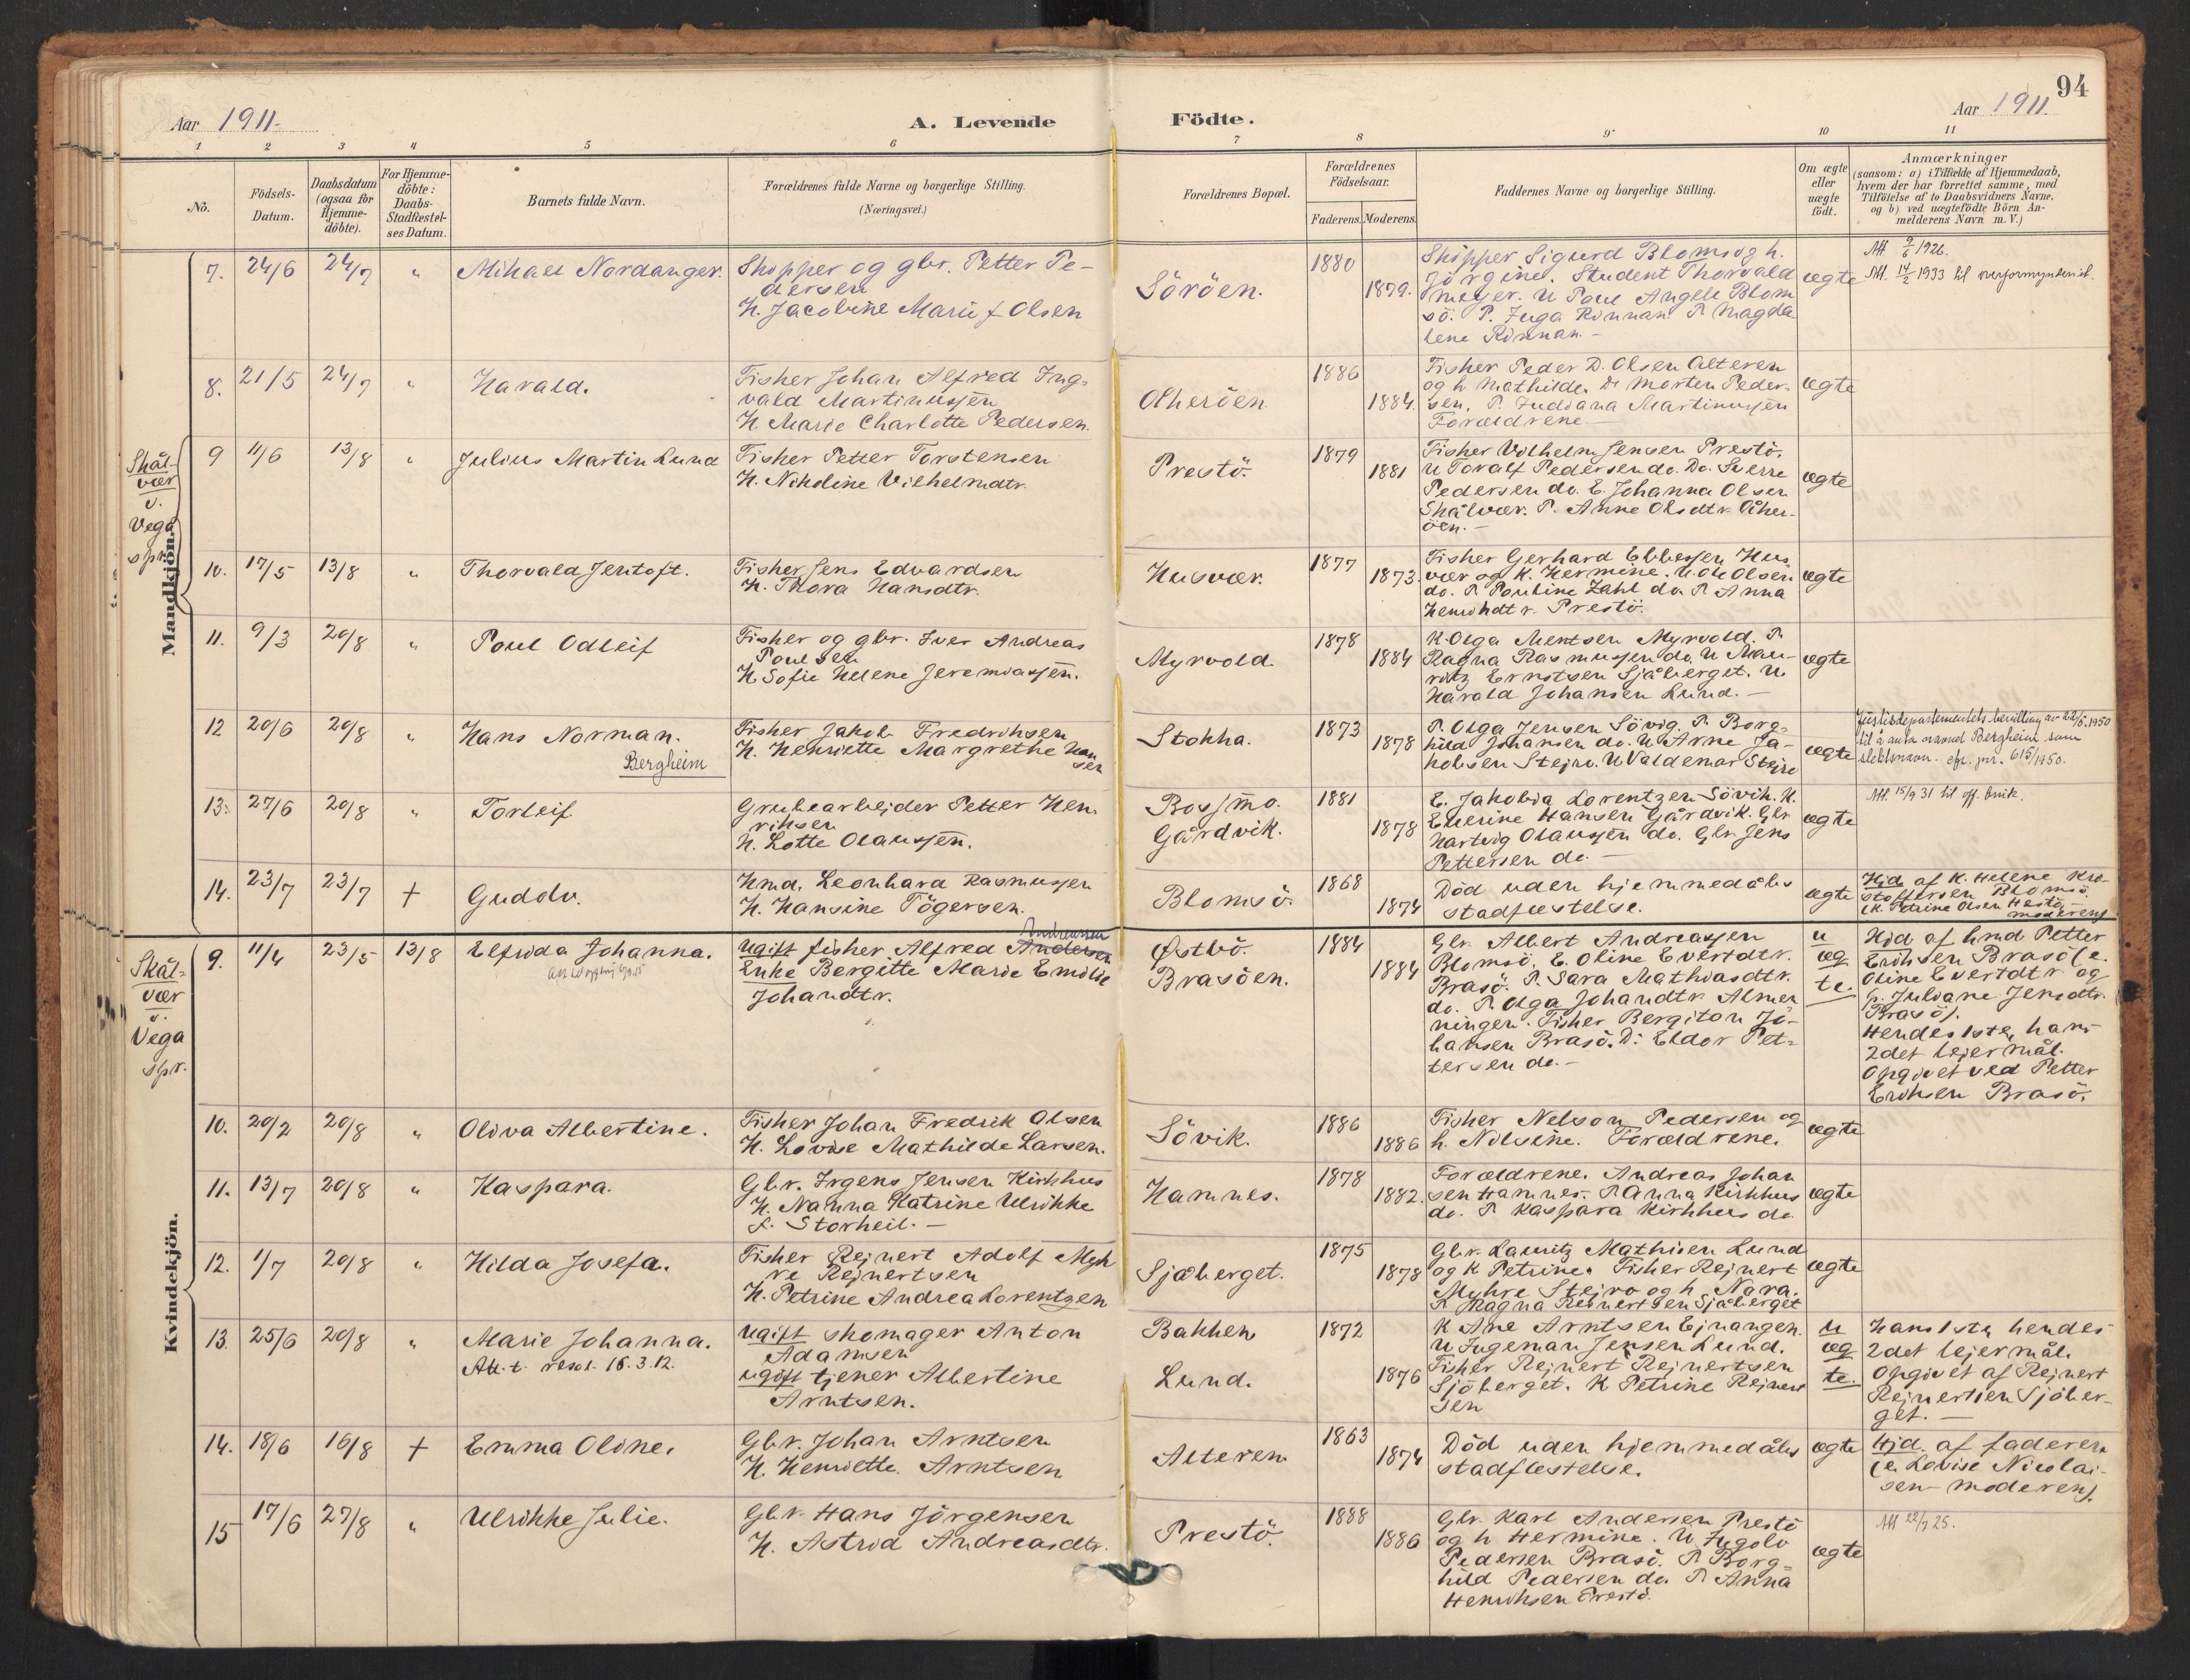 94
Aar 1911.
A. Levende Födte.
Aar 1911.
1 2 3 4 5 6 7 8 9 10 11
No.
Födsels-
Datum.
Daabsdatum
(ogsaa for
Hjemme-
döbte).
For Hjemme-
döbte:
Daabs-
Stadfæstel-
ses Datum.
Barnets fulde Navn.
Forældrenes fulde Navne og borgerlige Stilling.
(Næringsvei.)
Forældrenes Bopæl.
Forældrenes
Födselsaar.
Faderens. Moderens.
Faddernes Navne og borgerlige Stilling.
Om ægte
eller
uægte
födt.
Anmærkninger
(saasom: a) i Tilfælde af Hjemmedaab,
hvem der har forrettet samme, med
Tilföielse af to Daabsvidners Navne.
og b) ved uægtefödte Börn An-
melderens Navn m. V.)
Mandkjön.
7. 24/6 24/7 " Mikael Nordanger.
Skipper og gbr. Petter Pe-
dersen
H. Jacobine Marie f Olsen
Söröen.
1880
1879.
Skipper Sigurd Blomsö og h.
Jörgine. Student Thorvald
Meyer. U Poul Angell Blom
sö. P. Inga Rinnan. P. Magda
lene Rinnan.-
ægte
Att 9/6 1926.
Att. 14/2 1933 til overformynderiet.
8. 21/5 24/7 " Harald.
Fisker Johan Alfred Ing-
vald Martinussen
H Marie Charlotte Pedersen.
Okeröen
1886
1884.
Fisker Peder D. Olsen Alteren
og h Mathilde. Do Morten Peder-
sen. P. Juddiana Martinussen
Forældrene-
ægte
Skål-
vær
i.
Vega
spr.
9 11/6 13/8 " Julius Martin Lund
Fisker Petter Torstensen
H. Nikoline Vilhelmdtr.
Prestö.
1879
1881
Fisker Vilhelm Jensen Prestö.
U Toralf Pedersen do. Do. Sverre
Pedersen do. E. Johanna Olsen
Skålvær. P. Anne Olsdtr. Åker-
öen.-
ægte
10. 17/5 13/8 " Thorvald Jentoft.
Fisker Jens Edvardsen
H. Thora Hansdtr.
Husvær.
1877
1873.
Fisker Gerhard Ebbesen Hus
vær og K. Hermine. U. Ole Olsen
do. P. Pouline Zahl do. P. Anna
Henrikdtr. Prestö.
ægte
11. 9/3 20/8 " Poul Odleif
Fisker og gbr. Iver Andreas
Poulsen
H. Sofie Helene Jeremiassen.
Myrvold.
1878
1884
K. Olga Mentsen Myrvold. P.
Ragna Rasmussen do. U Mau-
ritz Ernstsen Sjåberget. U.
Harald Johansen Lund.-
ægte
12 20/6 20/8 " Hans Norman.
Bergheim
Fisker Jakob Fredriksen
H. Henriette Margrethe Han
sen
Stokka.
1873
1878
P. Olga Jensen Sövig. P. Borg-
hild Johansen do. U Arne Ja-
kobsen Stejro. U Valdemar Stejro
ægte
Justisdepartementets bevilling av 22/5.1950
til å anta navnet Bergheim som
slektsnavn. cfr. jnr. 615/1950.
13. 27/6 20/8 " Torleif.
Grubearbejder Petter Hen-
riksen
H. Lotte Olaussen.
Bossmo.
Gårdvik.
1881
1878
E. Jakobia Lorentzen Sövik. K.
Enerine Hansen Gårdvik. Gbr
Hartvig Olaussen do. Gbr Jens
Pettersen do.-
ægte
Att. 15/9 31 til off. bruk.
14. 23/7 23/7 + Guddu.
Hmd. Leonhard Rasmussen
H. Hansine Tögersen.
Blomsö.
1868
1874
Död uden hjemmedåbs
stadfæstelse.
ægte
Hjd af K. Helene Kri-
stoffersen Blomsö
(K. Petrine Olsen Hestö-
moderen)
Skål-
vær
i.
Vega
spr.
Kvindekjön.
9. 11/4 23/5 13/8 Elfrida Johanna.
Andreassen
ugift fisker Alfred Andersen
Enke Bergitte Marie Emilie
Johandtr.
Østbö.
Brasöen.
1884
1884
Gbr. Albert Andreassen
Blomsö. E. Oline Evertdtr.
Brasö. P. Sara Mathiasdtr.
do. P. Olga Johandtr. Almen
ningen. Fisker Bergiton Jo-
hansen Brasö. D: Eldor Pet-
tersen do.-
u
æg
te.
Hjd af hmd Petter
Eriksen Brasö (e.
Oline Evertdtr og
p. Juliane Jensdtr.
Brasö).
Hendes 1ste, hans
2det lejermål.
Opgivet ved Petter
Eriksen Brasö.
10. 20/2 20/8 " Oliva Albertine.
Fisker Johan Fredrik Olsen
H. Lovise Mathilde Larsen.
Sövik.
1886
1886
Fisker Nelson Pedersen og
h. Nilsine. Forældrene.
ægte
11. 13/7 20/8 " Kaspara.
Gbr. Irgens Jensen Kirkhus
H. Nanna Katrine Ulrikke
f. Storheil.-
Hamnes.
1878
1882.
Forældrene. Andreas Johan
sen Hamnes. P. Anna Kirkhus
do. P. Kaspara Kirkhus do.
ægte
12. 1/7 20/8 " Hilda Josefa.
Fisker Rejnert Adolf Myh
re Rejnertsen
H. Petrine Andrea Lorentzen
Sjåberget.
1875
1878
Gbr. Lauritz Mathisen Lund
og K Petrine. Fisher Rejnert
Myhre Stejro og h Nora.
P. Magna Rejnertsen Sjåberget
ægte
13. 25/6 20/8 " Marie Johanna.
Att. t. resol. 16.3.12.
ugift skomager Anton
Adamsen
ugift tjener Albertine
Arntsen.
Bakken
Lund.
1872
1876
K Ane Arntsen Ejnangen.
U Ingeman Jensen Lund.
Fisker Rejnert Rejnertsen
Sjöberget. K Petrine Rejnert
sen
u
æg
te.
Hans 1ste, hendes
2det lejermål.
Opgivet af Rejnert
Rejnertsen Sjöber-
get.-
14. 18/6 16/8 + Emma Oline.
Gbr. Johan Arntsen
H. Henriette Arntsen
Alteren
1863
1874
Död uden hjemmedåbs
stadfæstelse.
ægte
Hjd. af faderen
(e. Lovise Nicolai-
sen- moderen).
15 17/6 27/8 " Ulrikke Julie.
Gbr. Hans Jörgensen
H. Astrid Andreasdtr.
Prestö.
1888
1886
Gbr. Karl Andersen Prestö
og h Hermine. U Ingolv
Pedersen Brasö. P. Borg-
hild Pedersen do. P. Anna
Henriksen Prestö.
ægte
Att 22/7 25.